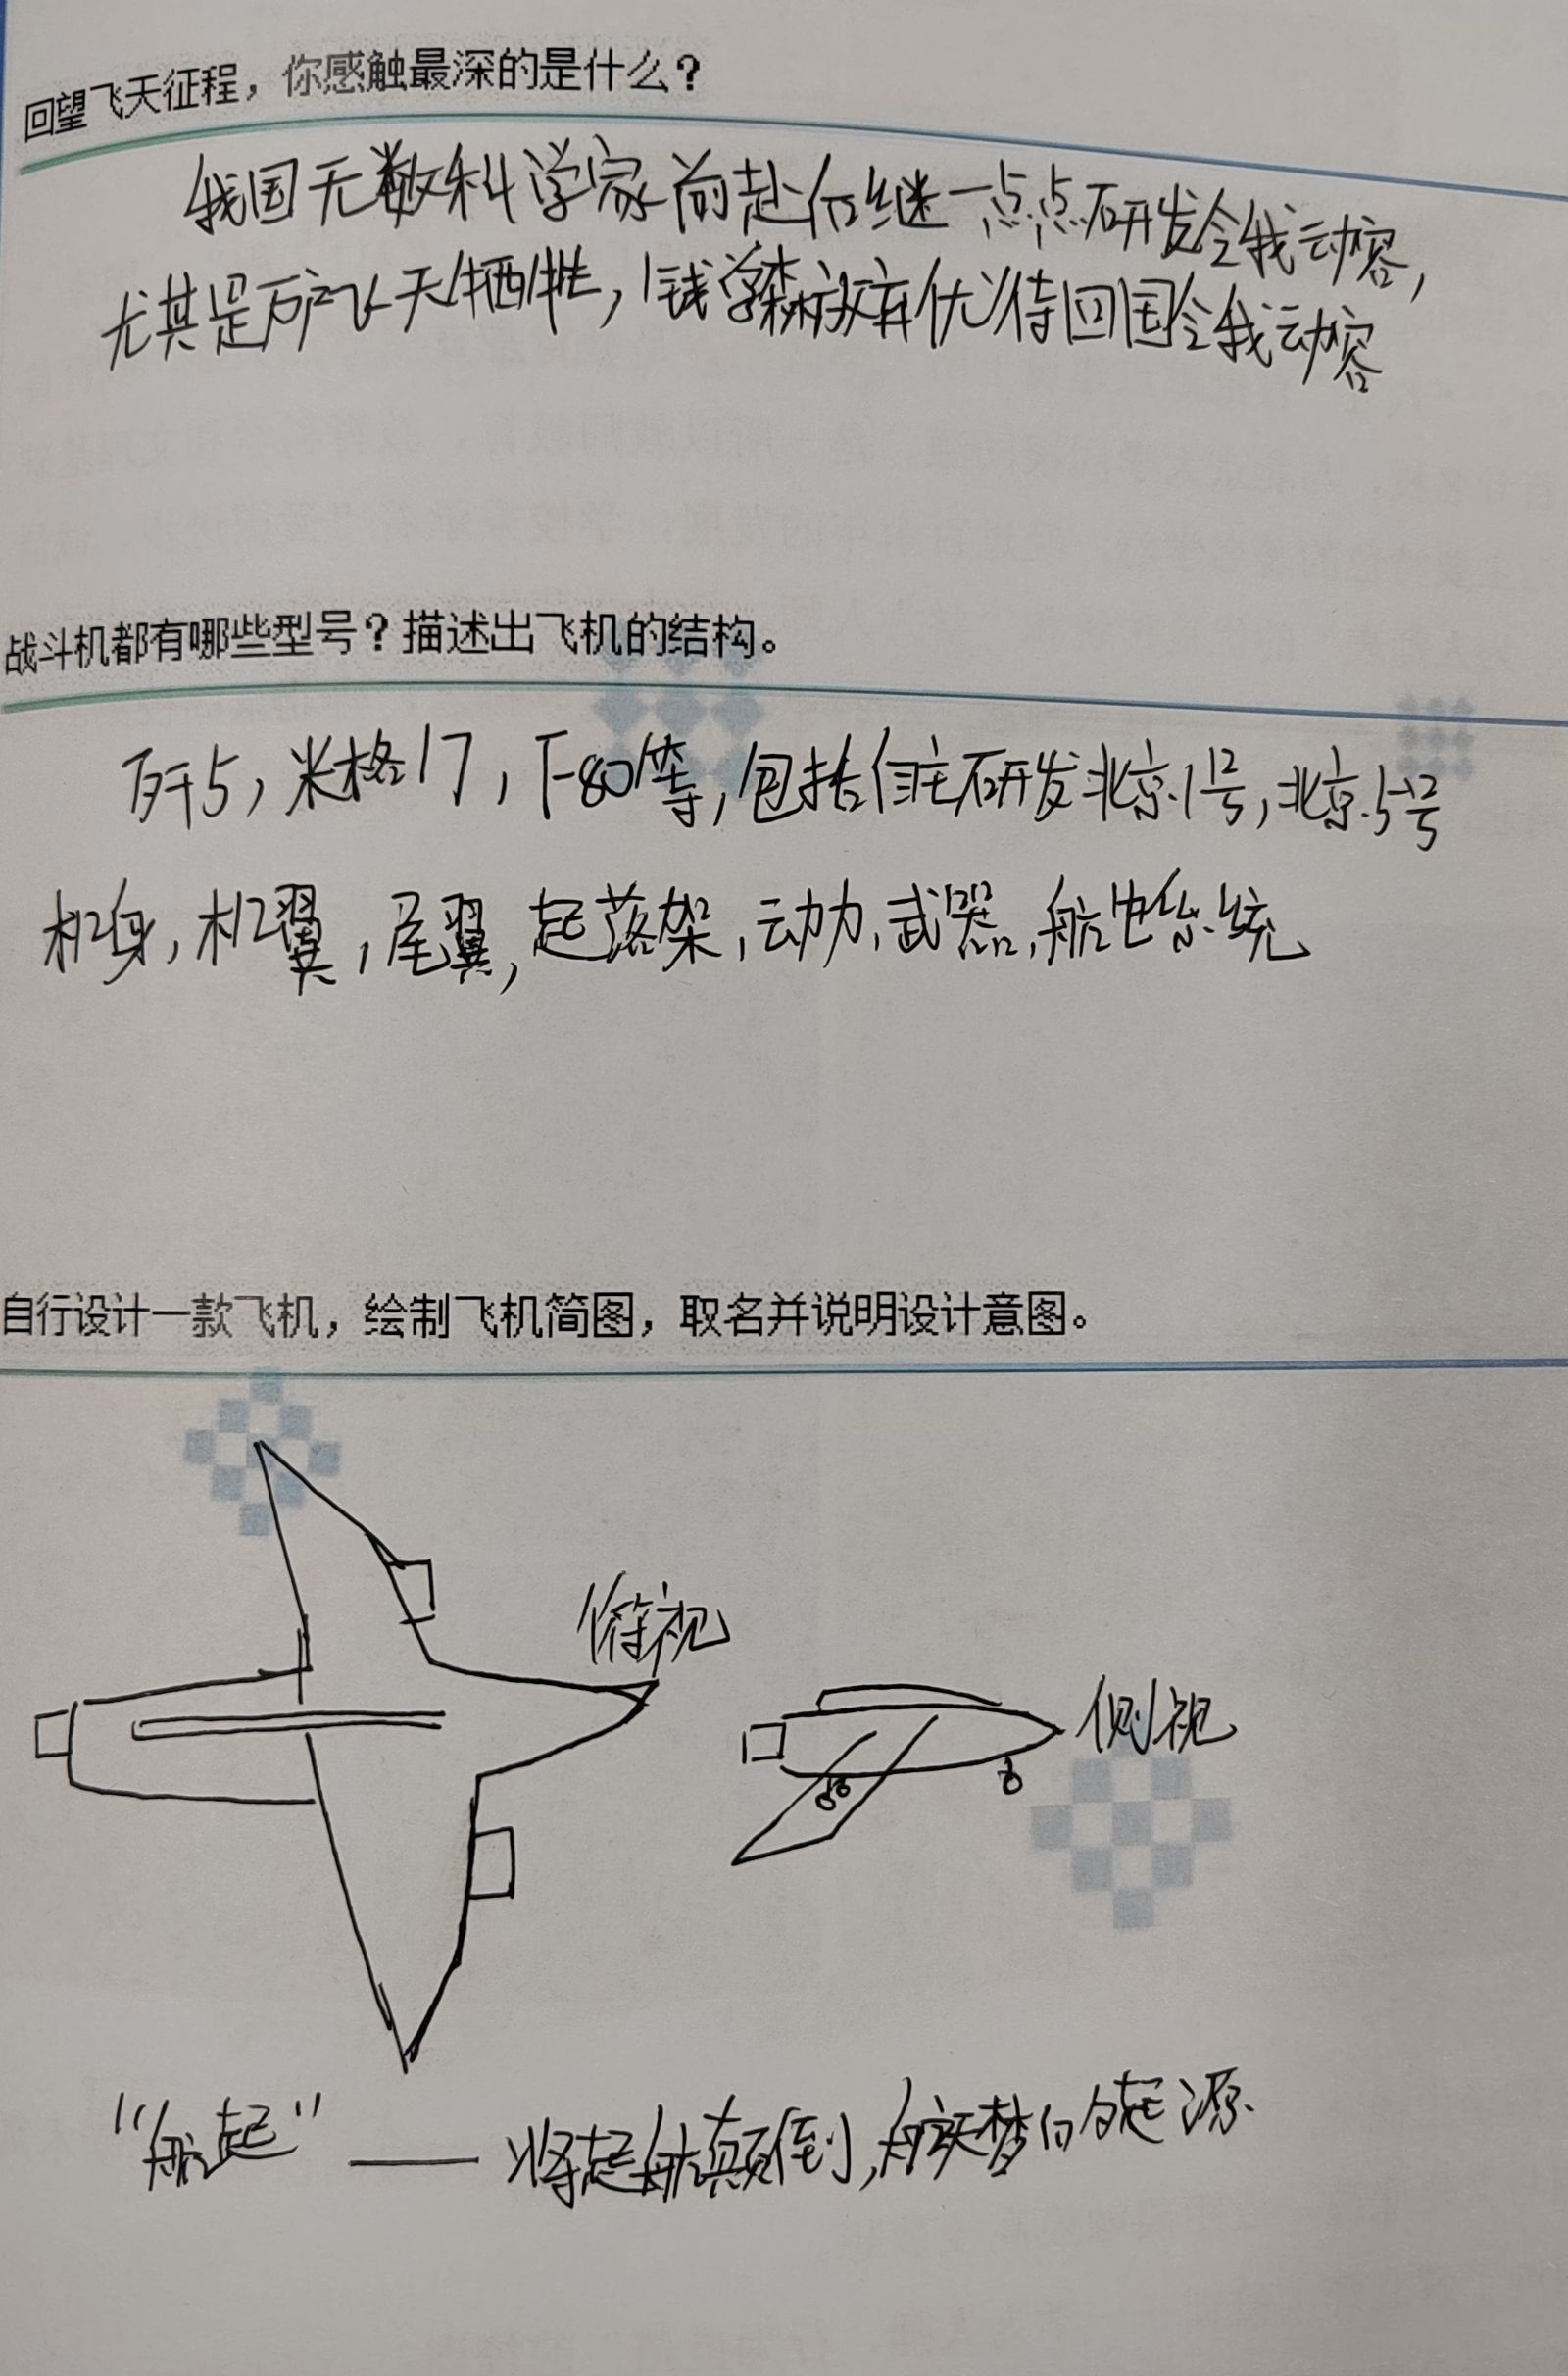 回望飞天征程，你感触最深的是什么？
我国无数科学家前赴后继一点点研发令我动容，
尤其是万户飞天牺牲，钱学森放弃优待回国令我动容
战斗机都有哪些型号？描述出飞机的结构。
歼5，米格17，F-80等，包括自主研发北京1号，北京5号
机身，机翼，尾翼，起落架，动力，武器，航电系统
自行设计一款飞机，绘制飞机简图，取名并说明设计意图。
俯视
侧视
“航起”——将起航颠倒，航天梦的起源